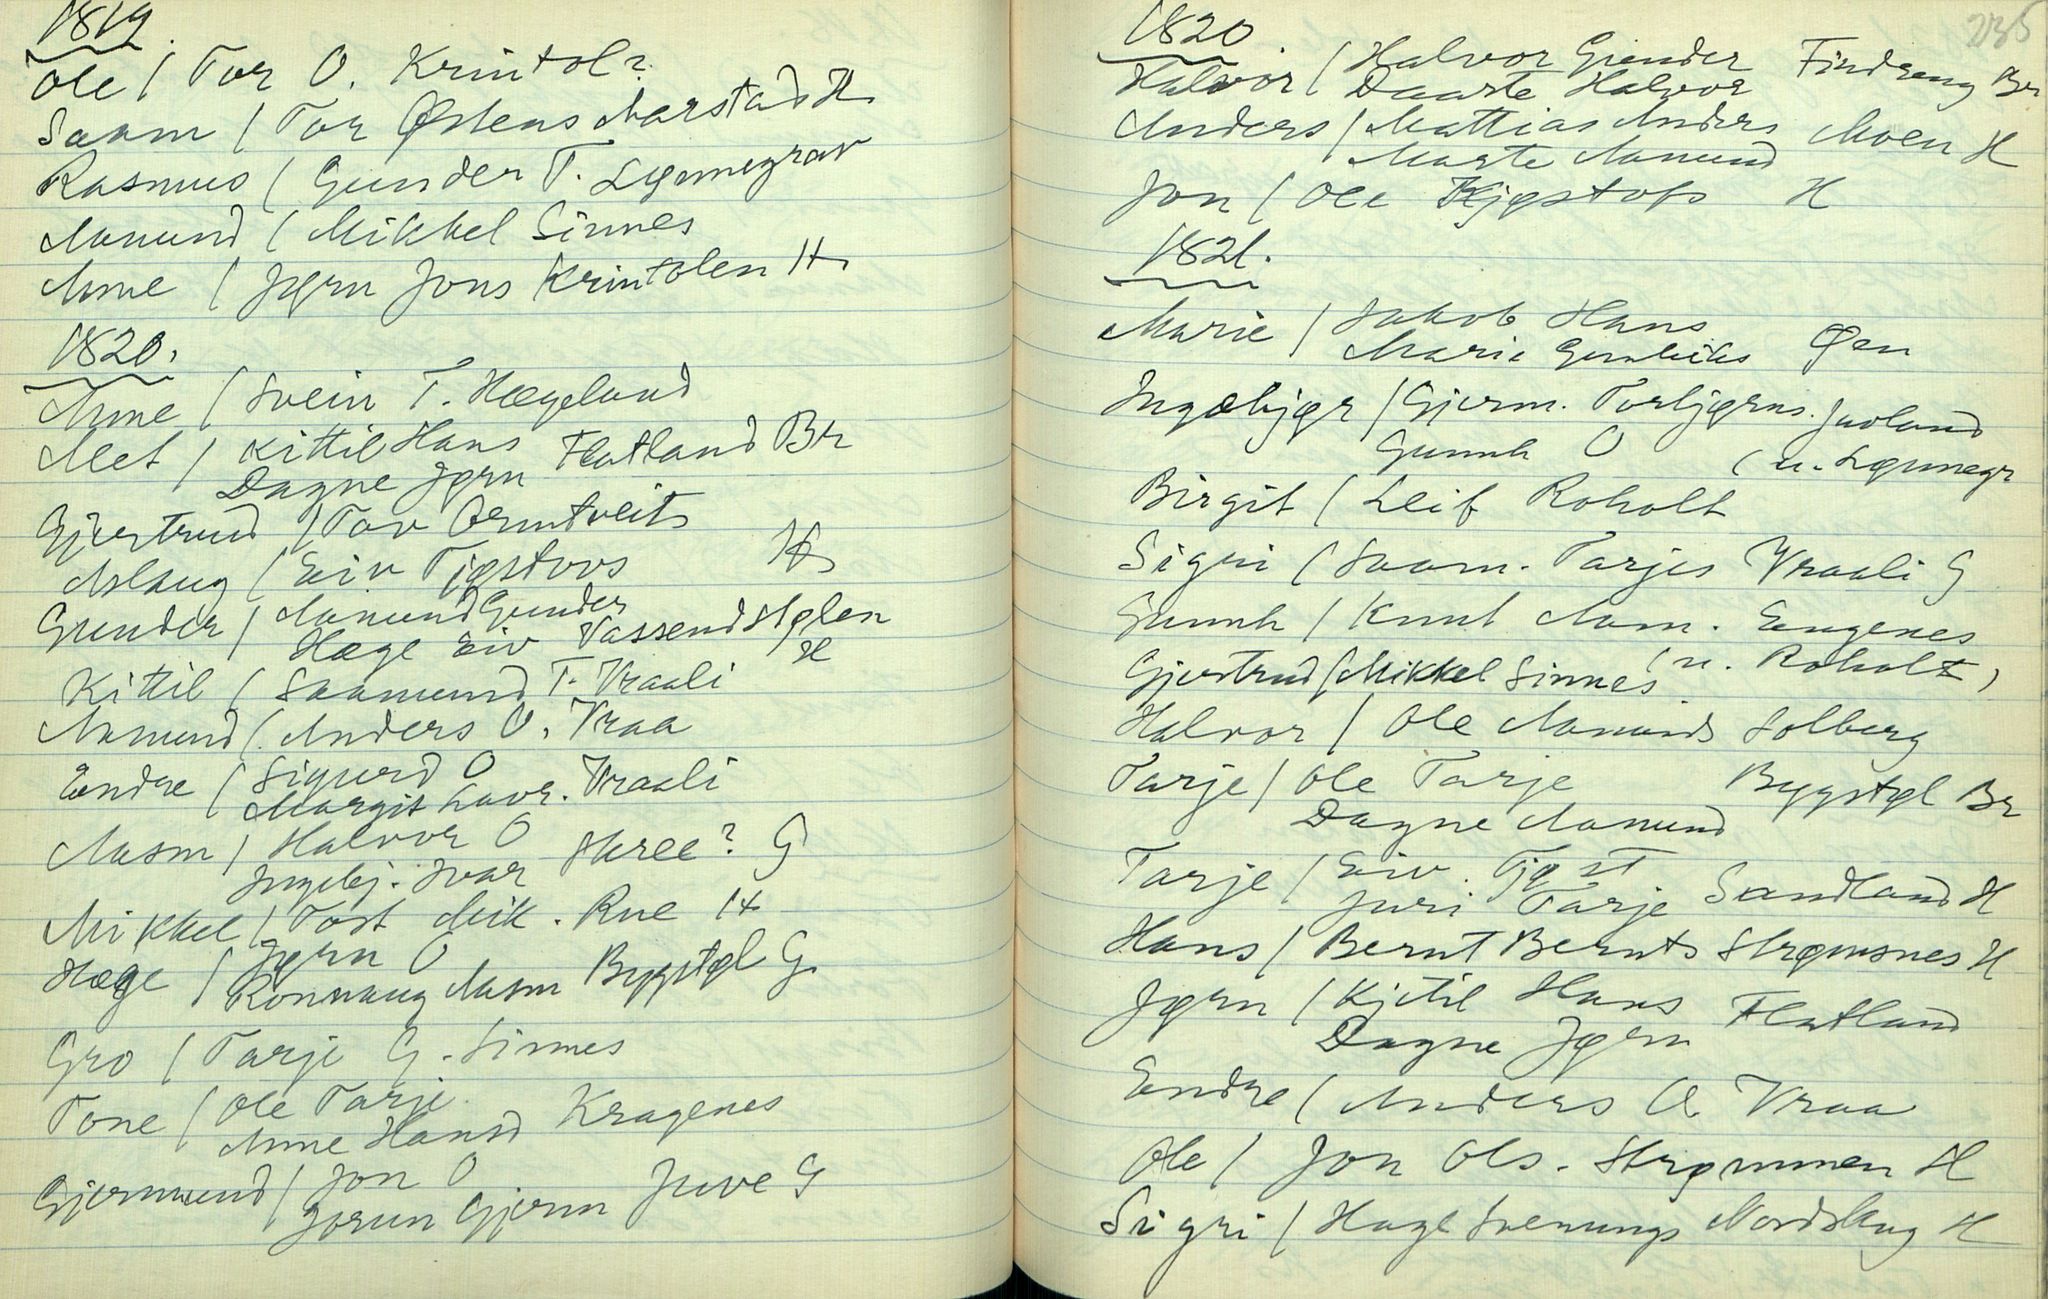 1819.
Ole / Tor O. Krintol?
Saam / Tor Østens Marstad H
Rasmus / Gunder T. Lønnegrav
Aamund / Mikkel Sinnes
Anne / Jørn Jons Krintolen H
1820.
Anne / Svein T. Hægeland
Met / Kittil Hans Flatland Br
Dagne Jørn
Gjertrud / Tov Armtveit
Aslaug / Eiv Tjøstovs H
Gunder / Aamund Gunder
Hæge Eiv Vassend Hølen
H
Kittil / Saamund T. Vraali
Aamund / Anders O. Vraa
Endre / Sigurd O
Margit Lavr. Vraali
Aasm / Halvor O
Ingebj. Ivar Skree? G
Mikkel / Tost Mik. Rue H
Hæge / Jørn O
Rønnaug Aasm Bygstøl G
Gro / Tarje G. Sinnes
Tone / Ole Tarje
Anne Hansd Kragenes
Gjermund / Jon O
Jorun Gjerm Juve G
235
1820.
Halvor / Halvor Gunder Findreng Br
Daarte Halvor
Anders / Mattias Anders Moen H
Marte Aamund
Jon / Ole Kjøstofs H
1821.
Marie / Jakob Hans
Marie Gunleiks Øen
Ingebjør / Gjerm. Torbjørns. Juvland
Gunnh O ( u. Lønnegr
Birgit / Leif Roholt
Sigri / Saam. Tarjes Vraali G
Gunnh / Knut Aam. Eugenes
( u. Roholt )
Gjertrud / Mikkel Sinnes
Halvor / Ole Aamunds Solberg
Tarje / Ole Tarje Bygstøl Br
Dagne Aamund
Tarje / Eiv. Tjøst
Juri Tarje Sandland H
Hans / Bernt Bernts Strømsnes H
Jørn / Kjetil Hans Flatland
Dagne Jørn
Endre / Anders O. Vraa
Ole / Jon Ols. Strømmen H
Sigri / Hage Svenungs Nordskog H